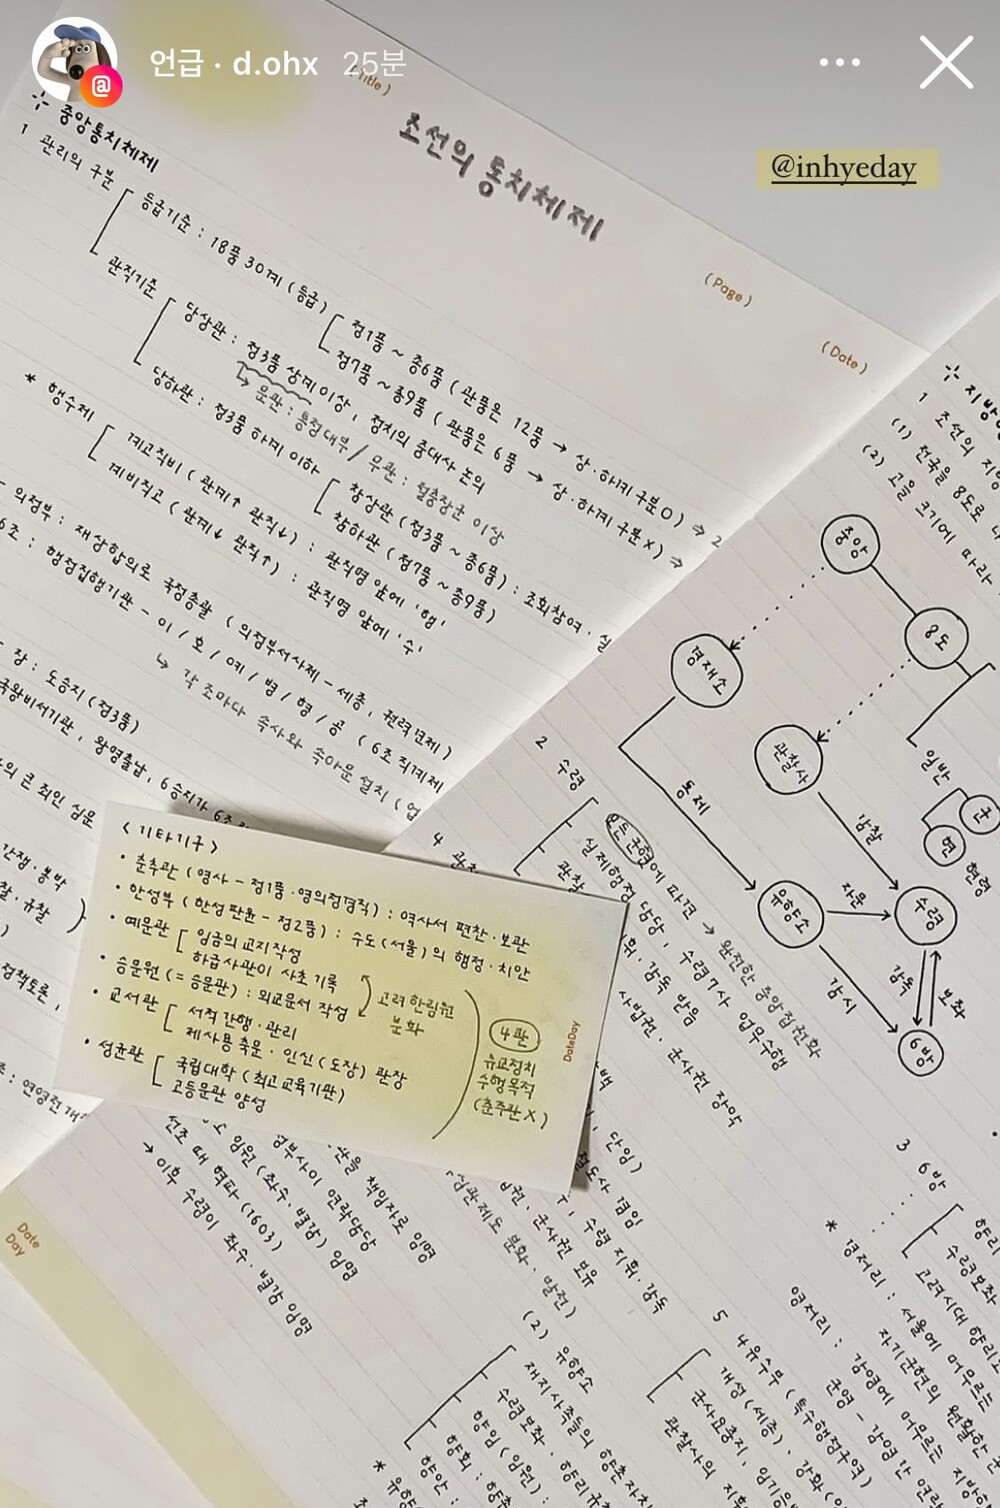 언급 · d.ohx 25분
@inhyeday
조선의 통치체제
(Page)
(Date)
중앙통치체제
1 관리의 구분
등급기준 : 18품 30계 (등급)
정1품 ~ 종6품 ( 관품은 12품 → 상·하계 구분O) ⇒ 2
정7품 ~ 종9품 ( 관품은 6품 → 상·하계 구분X) ⇒
관직기준
당상관 : 정3품 상계 이상, 정치의 중대사 논의
↳ 문관 : 통정대부 / 무관 : 절충장군 이상
당하관 : 정3품 하계 이하
참상관 (정3품 ~ 종6품) : 조회참여 ·
참하관 (정7품 ~ 종9품)
* 행수제
계고직비 ( 관계↑ 관직↓) : 관직명 앞에 '행'
계비직고 ( 관계↓ 관직↑) : 관직명 앞에 '수'
의정부 : 재상합의로 국정총괄 ( 의정부서사제 - 세종, 권력견제 )
6조 : 행정집행기관 - 이 / 호 / 예 / 병 / 형 / 공 ( 6조직계제
↳ 각 조마다 속사와 속아문 설치 (
장 : 도승지 (정3품)
국왕비서기관, 왕명출납, 6승지가 6조
의 큰 죄인 심문
간쟁 · 봉박
찰 · 규찰
정책토론,
< 기타기구 >
• 춘추관 ( 영사 - 정1품 · 영의정겸직) : 역사서 편찬 · 보관
• 한성부 ( 한성판윤 - 정2품) : 수도 (서울) 의 행정 · 치안
• 예문관
임금의 교지 작성
하급사관이 사초 기록
• 승문원 (= 승문관) : 외교문서 작성
고려 한림원
분화
• 교서관
서적 간행 · 관리
제사용 축문 · 인신 (도장) 관장
• 성균관
국립대학 (최고교육기관)
고등문관 양성
4관
유교정치
수행목적
(춘추관 X)
DateDay
선조 때 혁파 (1603)
→ 이후 수령이 좌수 · 별감 임명
임원 (좌수 · 별감) 임명
부사이 연락담당
관을 책임자로 임명
Date
Day
지방
1 조선의 지방
(1) 전국을 8도로 나
(2) 고을 크기에 따라
중앙
8도
경재소
관찰사
일반
군
현
현령
통제
감찰
유향소
자문
수령
감시
감독
보좌
6방
2 수령
모든 군현에 파견 → 완전한 중앙집권화
실제행정 담당, 수령7사 업무수행
관찰
휘 · 감독 받음
사법권 · 군사권 장악
단임)
겸임
수령 지휘 · 감독
법권 · 군사권 보유
심관제도 분화 · 발전)
(2) 유향소
재지사족들의 향촌자치
수령보좌 · 향리규찰
향임 (임원) :
향회 :
향안 :
3 6방
향리
수령보좌
고려시대 향리
* 경저리 : 서울에 머무르는
자기군현의 원활한
영저리 : 감영에 머무르는 지방
군영 - 감영간 연락
5 4유수부 (특수행정구역)
개성 (세종), 강화
군사요충지,
관찰사의 지휘